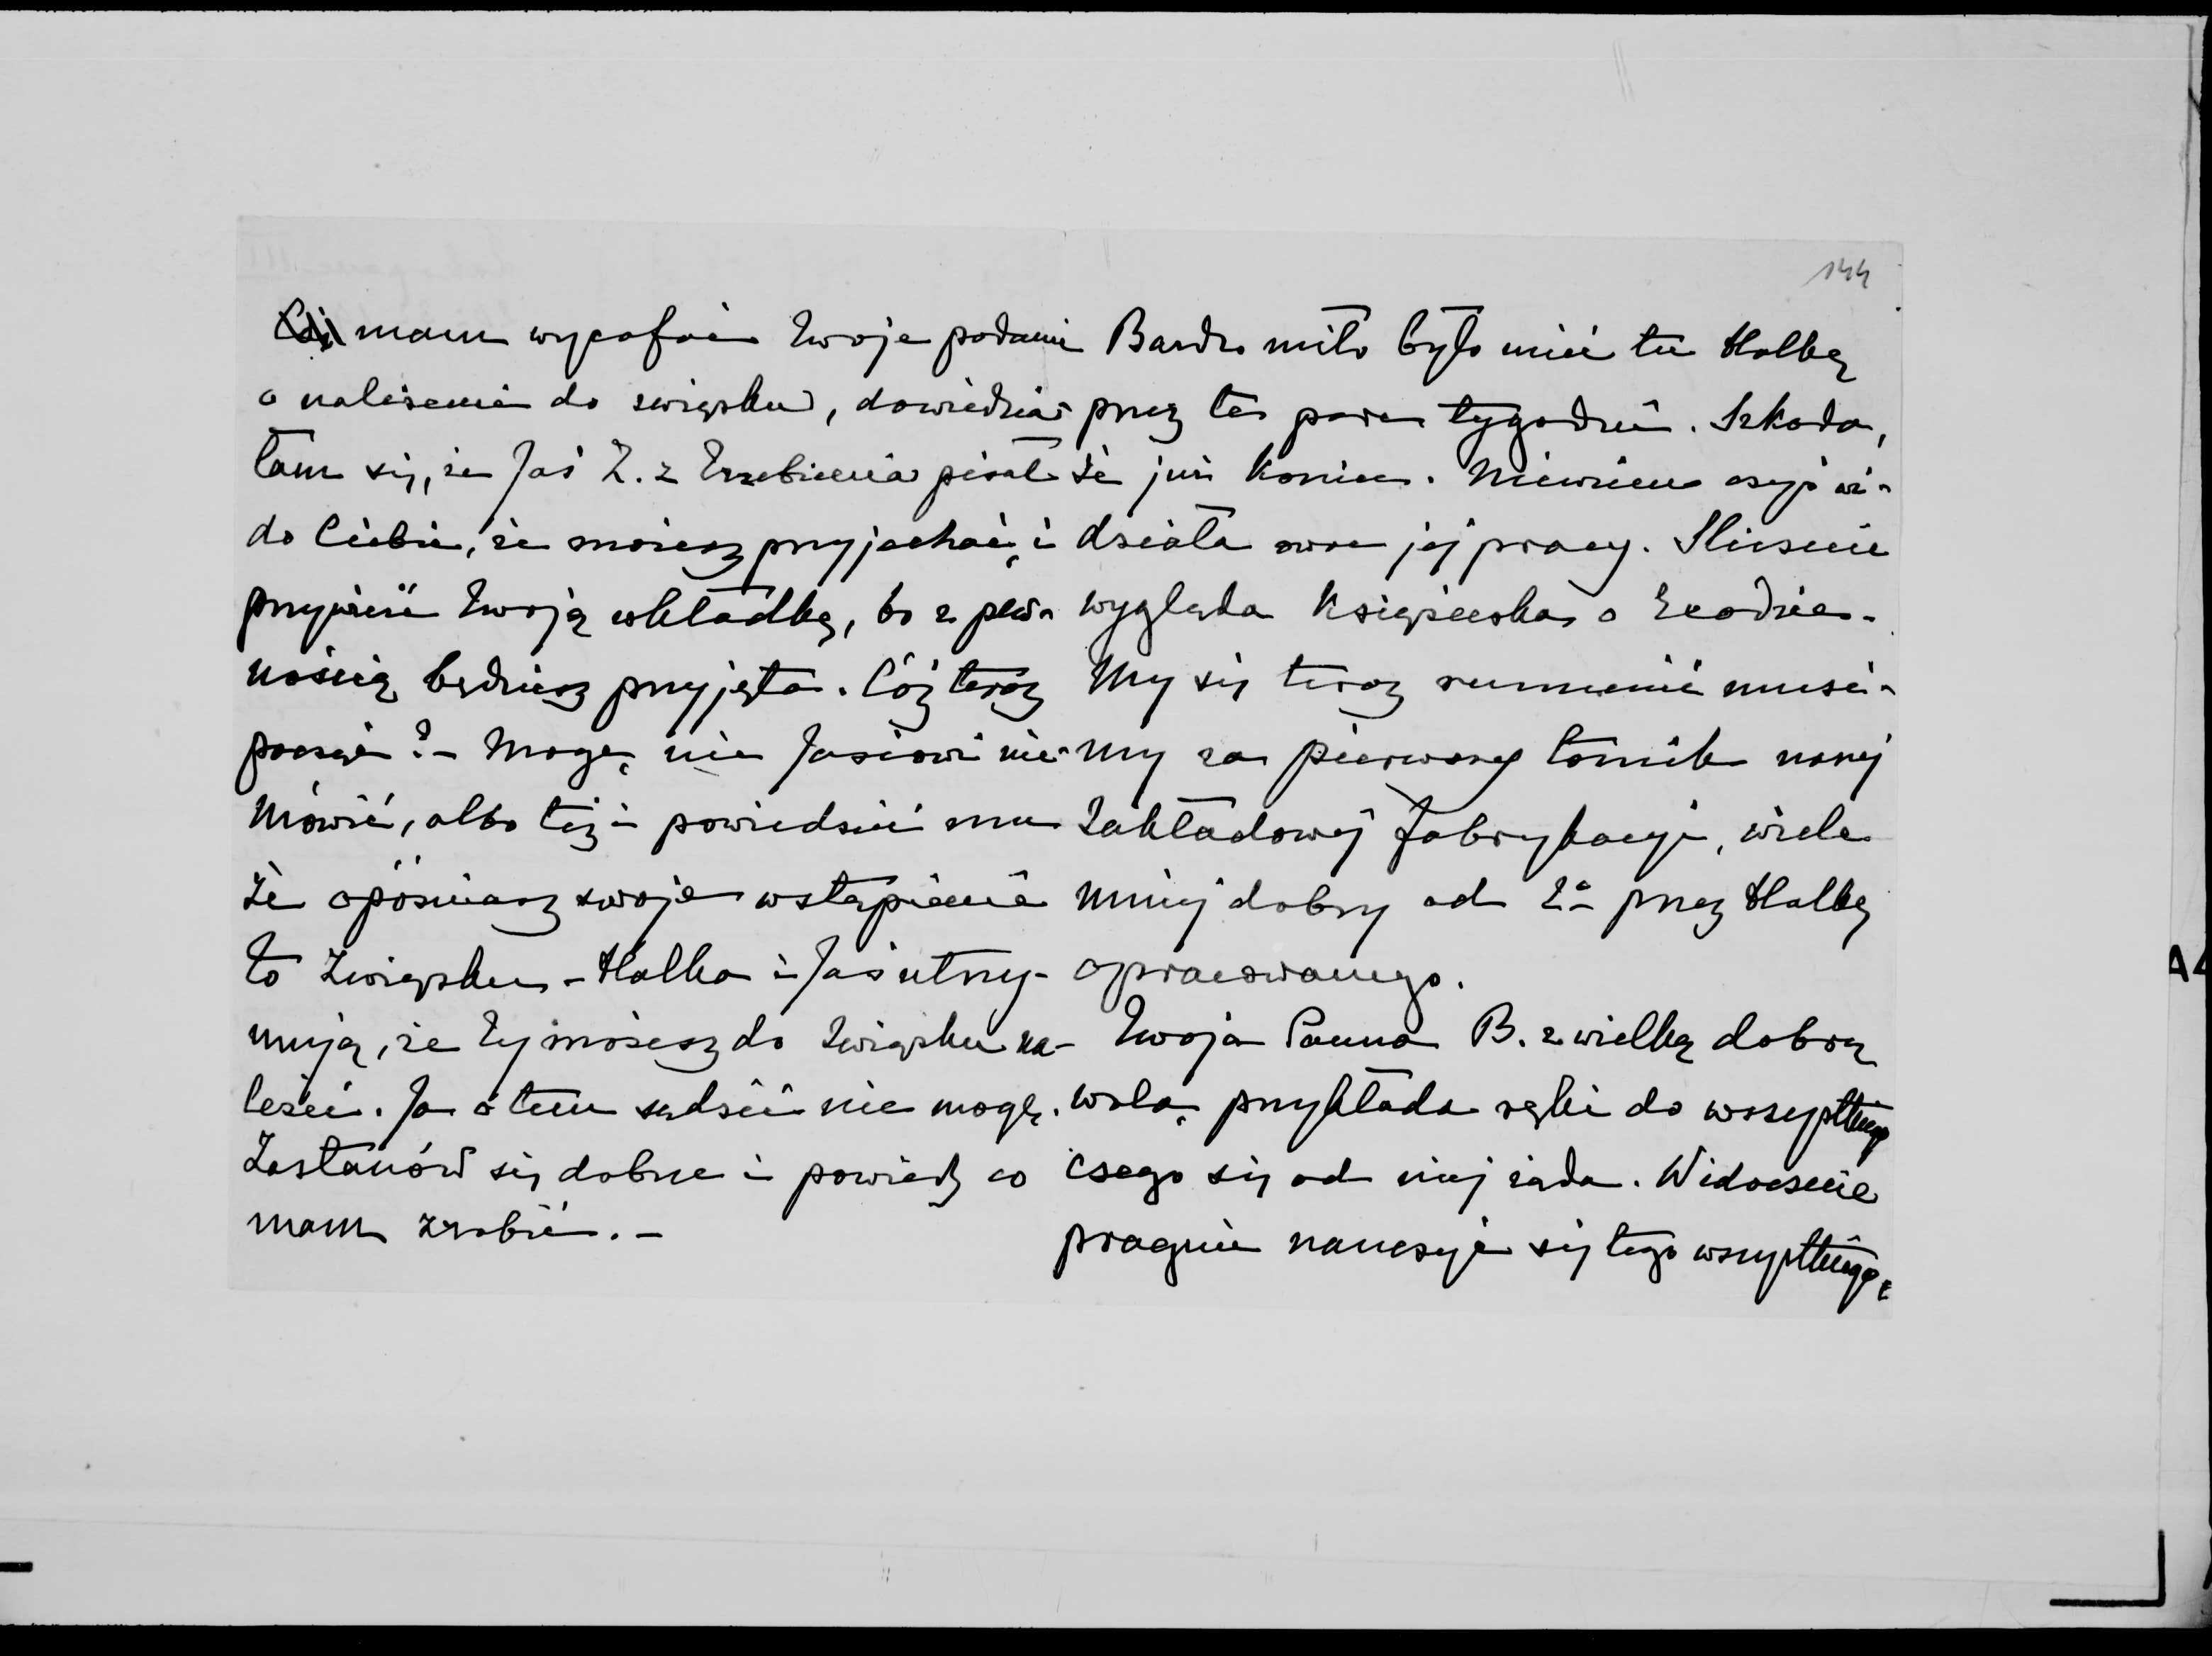 144
mam wycofać Twoje podanie
o należenie do związku, dowiedzia-
łam się, że Jaś Z. z Trzebienia pisał
do Ciebie, że możesz przyjechać, i
przywieść Twoją wkładkę, bo z pew-
nością będziesz przyjęta. Cóż teraz
począć? – Mogę nic Jasiowi nie
mówić, albo też i powiedzieć mu
że opóźniasz swoje wstąpienie
to Związku – Halka i Jaś utrzy-
mują, że Ty możesz do Związku na-
leżeć. Ja o tem sądzić nie mogę.
Zastanów się dobrze i powiedz co
mam zrobić. –
Bardzo miło było mieć tu Halkę
przez te parę tygodni. Szkoda,
że już koniec. Niewiem czyś wi-
działa owoc jej pracy. Ślicznie
wygląda książeczka o
My się teraz rumienić musi-
my za pierwszy tomik naszej
Zakładowej fabrykacji, wiele
mniej dobry od 2º przez Halkę
opracowanego.
Twoja Panna B. z wielką dobrą
wolą przykłada ręki do wszystkiego
czego się od niej żąda. Widocznie
pragnie nauczyć się tego wszystkiego,